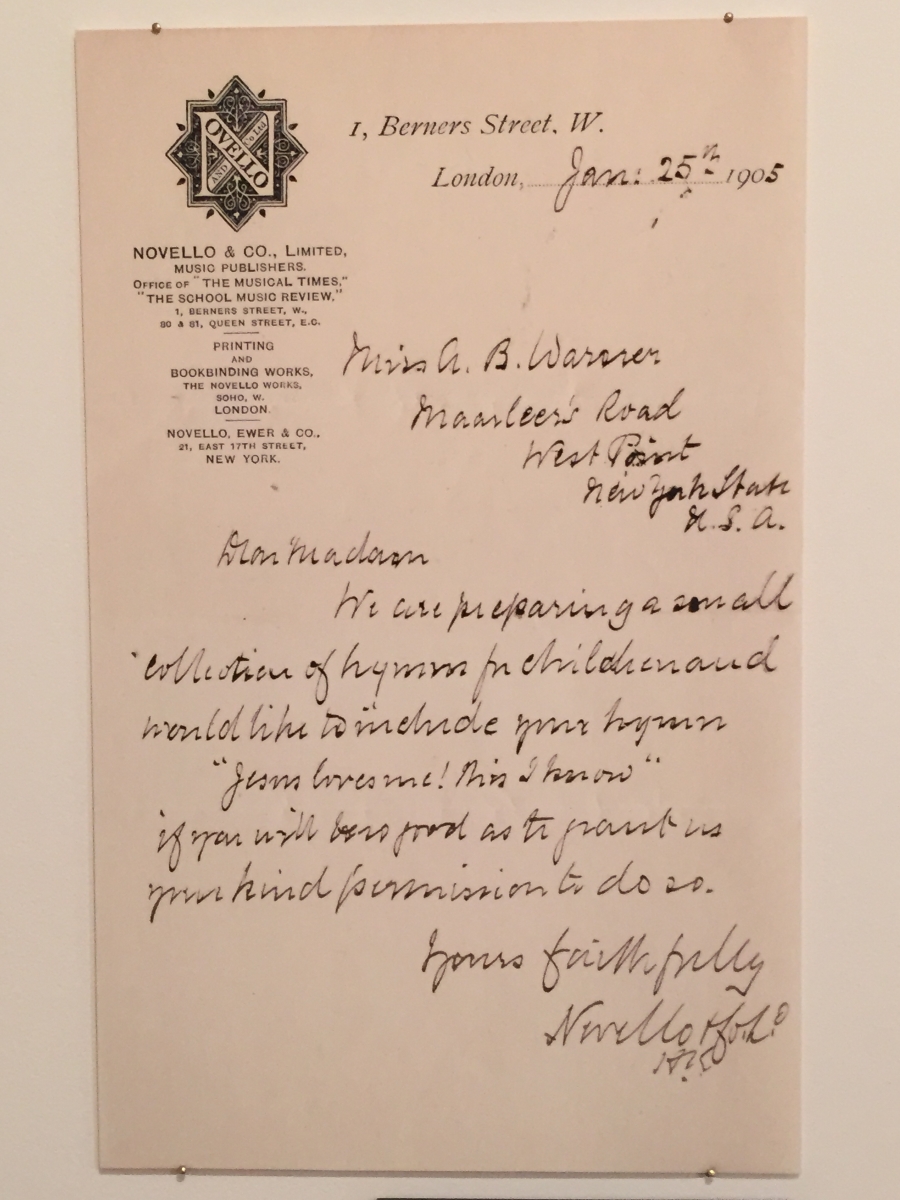 NOVELLO
AND Co Ltd
1, Berners Street, W.
London, Jan: 25th 1905
NOVELLO & CO., LIMITED,
MUSIC PUBLISHERS.
OFFICE OF "THE MUSICAL TIMES,"
"THE SCHOOL MUSIC REVIEW,"
1, BERNERS STREET, W.,
80 & 81, QUEEN STREET, E.C.
PRINTING
AND
BOOKBINDING WORKS,
THE NOVELLO WORKS,
SOHO, W.
LONDON.
NOVELLO, EWER & CO.,
21, EAST 17TH STREET,
NEW YORK.
Miss A. B. Warner
Road
West Point
New York State
U. S. A.
Dear Madam
We are preparing a small
collection of hymns for children and
would like to include your hymn
"Jesus loves me! this I know"
if you will be so good as to grant us
your kind permission to do so.
Yours faithfully
Novello & Co. Ld